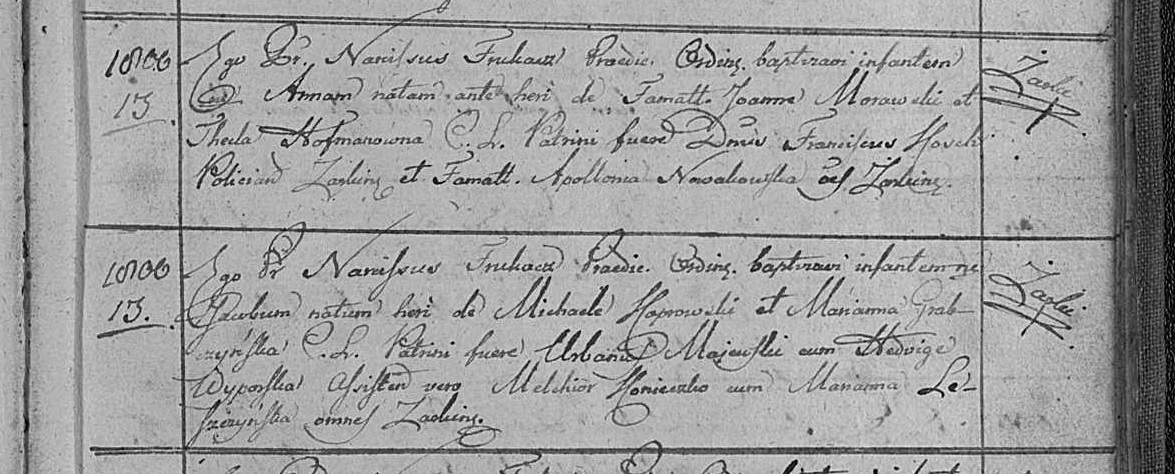 1806
13.
Ego Fr. Narcissus Fruhacz Praedic. Ordinis. baptizavi infantem
Annam natam ante heri de Famatt. Joanne Morawski et
Thecla Hofmanowna C. L. Patrini fuere Dnus Franciscus
Polician Zarkins et Famatt. Apollonia Nowakowska Zarkins.
Zarki
1806
13.
Ego Fr Narcissus Fruhacz Praedic. Ordins. baptizavi infantem ne
Jacobum natum heri de Michaele Koprowski et Marianna Grab-
czyńska C. L. Patrini fuere Urbanus Majewski cum Hedvige
Wyporska Assisten vero Melchior Konieczko cum Marianna Le-
szczyńska omnes Zarkins.
Zarki